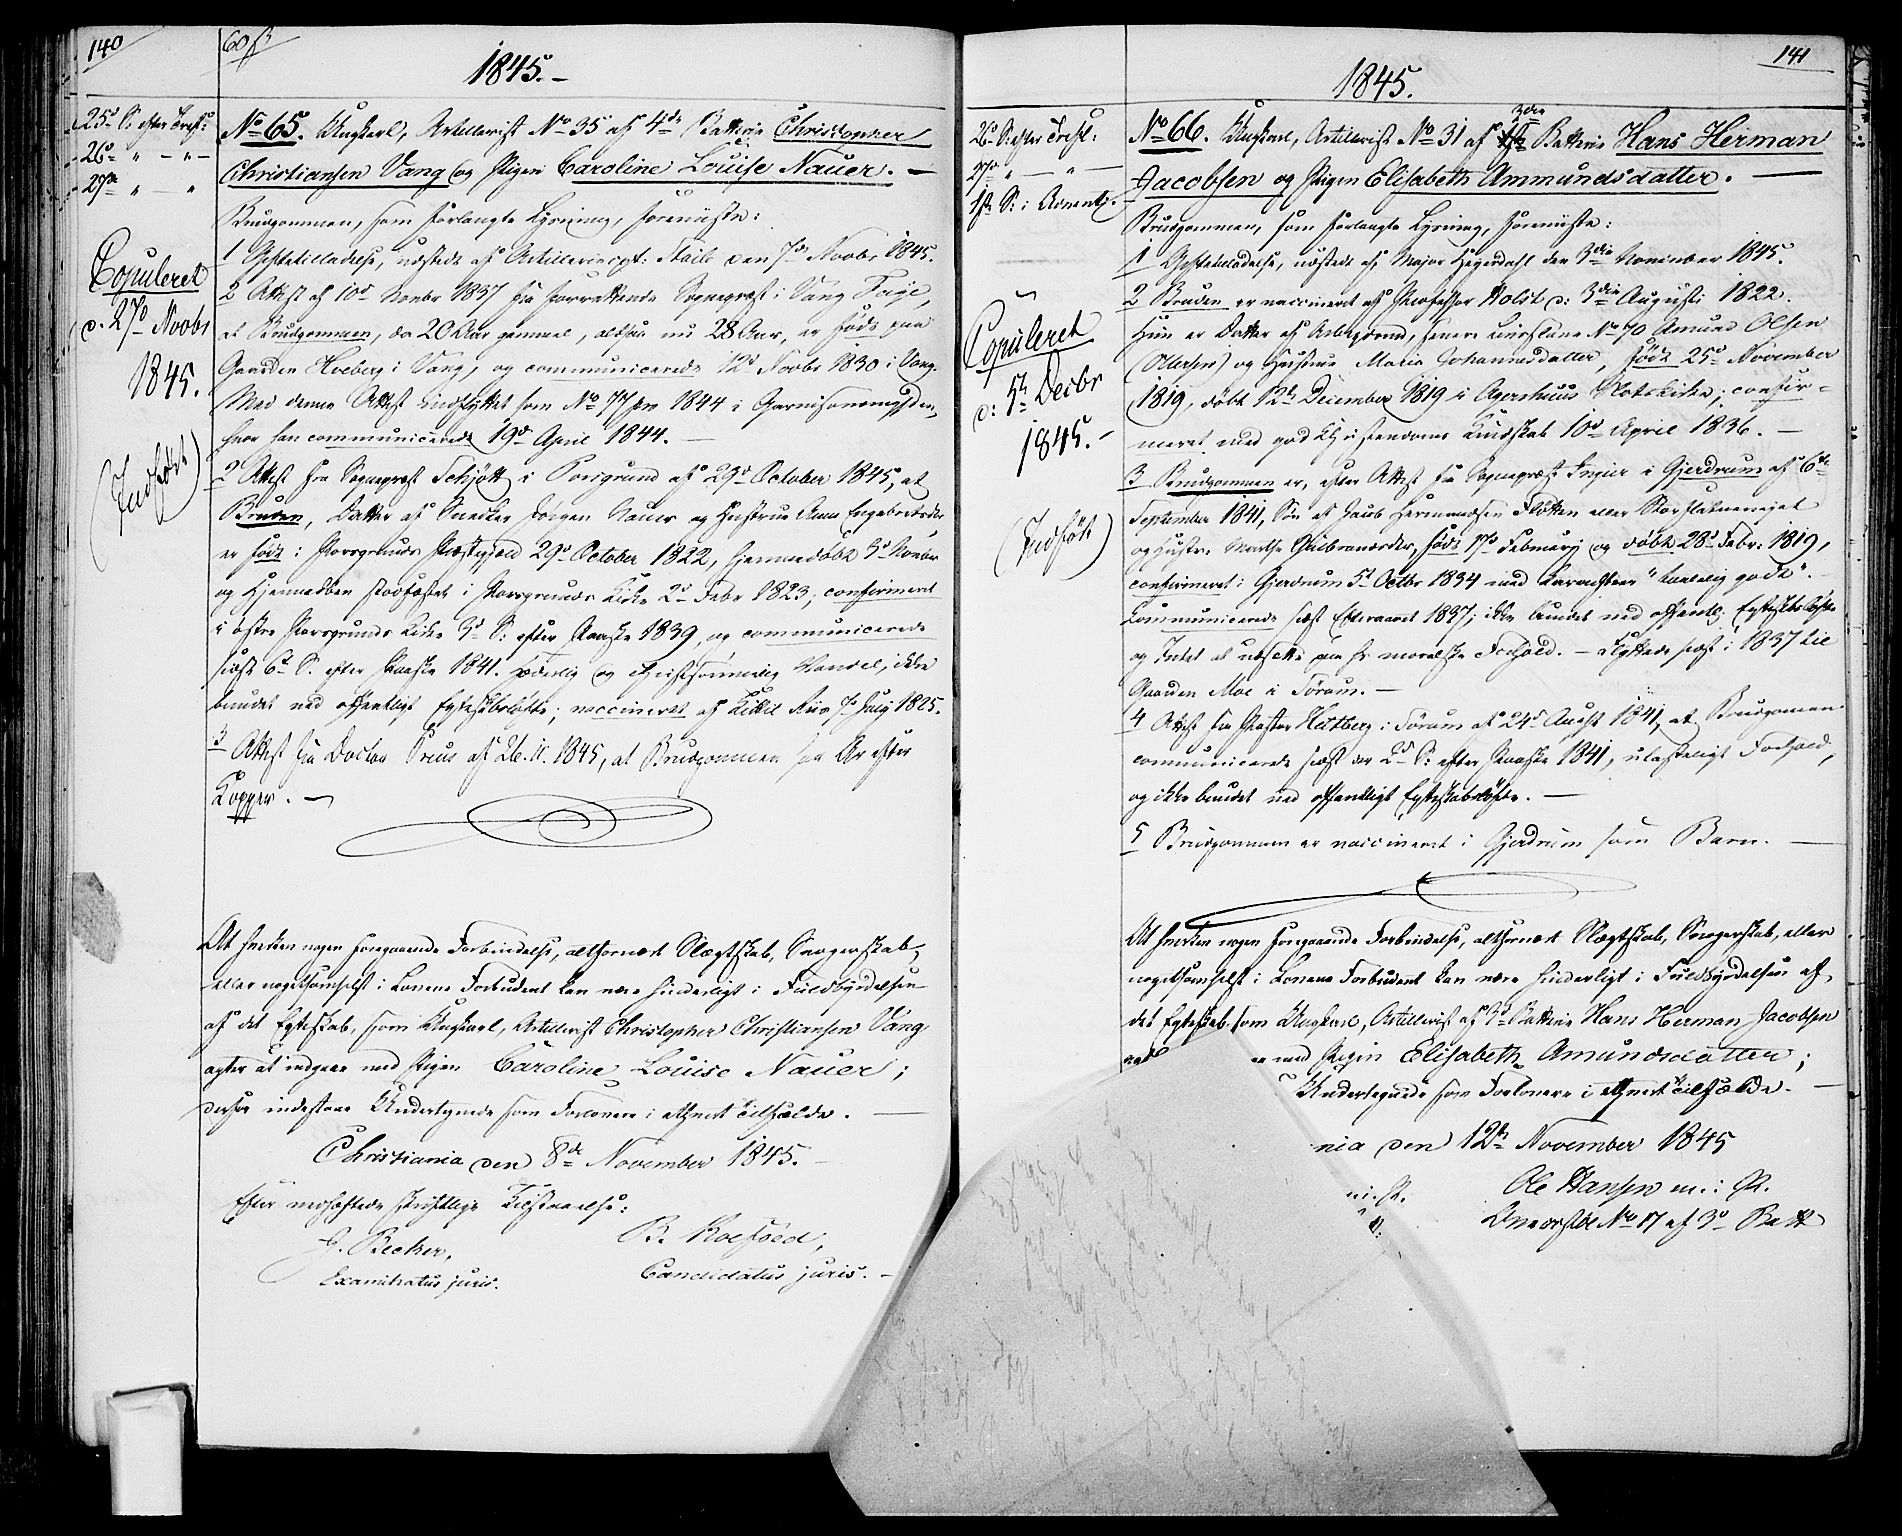 140
60 β
1845.-
25d S: efter Tref:
26d " - " -
27de " - "
Copuleret
d. 27d Novbr
1845.
(Indført)
No 65. Ungkarl, Artillerist No 35 af 4de Batterie Christopher
Christiansen Vang og Pigen Caroline Louise Nauer. -
Brudgommen, som forlangte Lysning, foreviiste:
1 Giftetilladelse, udstedt af Artilleriecpt: Staib den 7de Novbr 1845.
2 Attest af 10d Novbr 1837 fra forrettende Sognepræst i Vang Faye,
at Brudgommen, da 20 Aar gammel, altsaa nu 28 Aar, er født paa
Gaarden Hveberg i Vang, og communicerede 12d Novbr 1830 i Vang.
Med denne Attest indflyttet som No 77 pro 1844 i Garnisonsmenigheden,
hvor han communicerede 19de April 1844. -
2 Attest fra Sognepræst Schjøtt i Porsgrund af 29d October 1845, at
Bruden, Datter af Snedker Jørgen Nauer og Hustrue Anne Engebretsdtr
er født i Porsgrunds Præstegjeld 29d October 1822, hjemmedøbt 3d Novbr
og Hjemmedaaben stadfæstet i Porsgrunds Kirke 2d Febr 1823; confirmeret
i østre Porsgrunds Kirke 3d S: efter Paaske 1839, og communicerede
sidst 6te S. efter Paaske 1841. sædelig og christsømmelig Vandel, ikke
bundet ved offentligt Egteskabsløfte; vaccineret af Kittil Riis 7d July 1825.
3 Attest fra Doctor Preus af 26. 11. 1845, at Brudgommen har Ar efter
Kopper. -
At hverken nogen foregaaende Forbindelse, altfornært Slægtskab, Svogerskab,
eller nogetsomhelst i Lovene Forbudent kan være hinderligt i Fuldbyrdelsen
af det Egteskab, som Ungkarl, Artillerist Christopher Christiansen Vang
agter at indgaae med Pigen Caroline Louise Nauer;
derfor indestaae Undertegnede som Forlovere i ethvert Tilfælde. -
Christiania den 8de November 1845.
Efter vedhæftede skriftlige Tilstaaelse:
J. Becker, B. Roefoed,
Examinatus juris. Candidatus juris. -
141
1845.
26d S: efter Tref:
27de " - " -
1ste S: i Advent.
Copuleret
d: 5te Decbr
1845.-
(Indført)
3die
No 66. Ungkarl, Artillerist No 31 af Batterie Hans Herman
Jacobsen og Pigen Elisabeth Ammundsdatter. -
Brudgommen, som forlangte Lysning, foreviiste:
1 Giftetilladelse, udstedt af Major Hegerdahl den 3die November 1845.
2 Bruden er vaccineret af Professor Holst d: 3die Augusti 1822.
Hun er Datter af Arbeidsmand, senere Livsslave No 70 Amund Olsen
(Ullersen) og Hustrue Maria Johannesdatter, født 25d November
1819, døbt 12te December 1819 i Agershuus Slotskirke; confir-
meret med god Christendoms Kundskab 10d April 1836. -
3 Brudgommen er, efter Attest fra Sognepræst Ingier i Gjerdrum af 6te
September 1841, Søn af Jacob Hermandsen Fløtten eller Storfletneeiet
og Hustr. Marthe Gulbrandsdtr, født 17d February og døbt 28d Febr: 1819,
confirmeret i Gjerdrum 5te Octbr 1834 med Karacteer "temmelig godt".
Communicerede sidst Efteraaret 1837; ikke bundet ved offentlig Egteskabsløfte
og Intet at udsætte paa hs moralske Forhold. - Flyttede sidst i 1837 til
Gaarden Moe i Sørum. -
4 Attest fra Pastor Heltberg i Sørum af 24d August 1841, at Brudgommen
communicerede sidst der 2d S: efter Paaske 1841, ulasteligt Forhold,
og ikke bundet ved offentligt Egteskabsløfte. -
5 Brudgommen er vaccineret i Gjerdrum som Barn. -
At hverken nogen foregaaende Forbindelse, altfornært Slægtskab, Svogerskab, eller
nogetsomhelst i Lovene Forbudent kan være hinderligt i Fuldbyrdelsen af
det Egteskab, som Ungkarl, Artillerist af 3d Batterie Hans Herman Jacobsen
med Pigen Elisabeth Amundsdatter;
Undertegnede som Forlovere i ethvert Tilfælde. -
nia den 12te November 1845
Ole Hansen m: i: P.
No 17 af 3d Batt